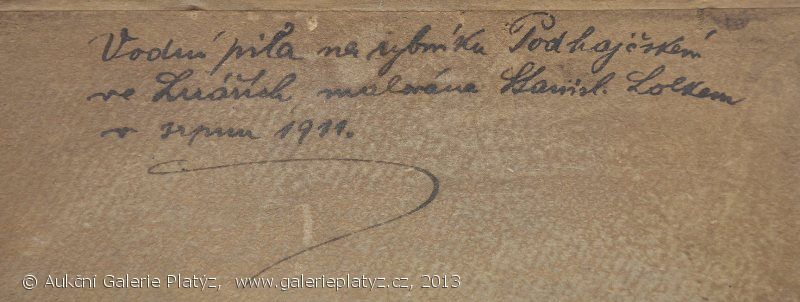 Vodní pila na rybníku Podhajčském
ve Lnářích, malována Stanisl. Lolkem
v srpnu 1911.
© Aukční Galerie Platýz, www.galerieplatyz.cz, 2013